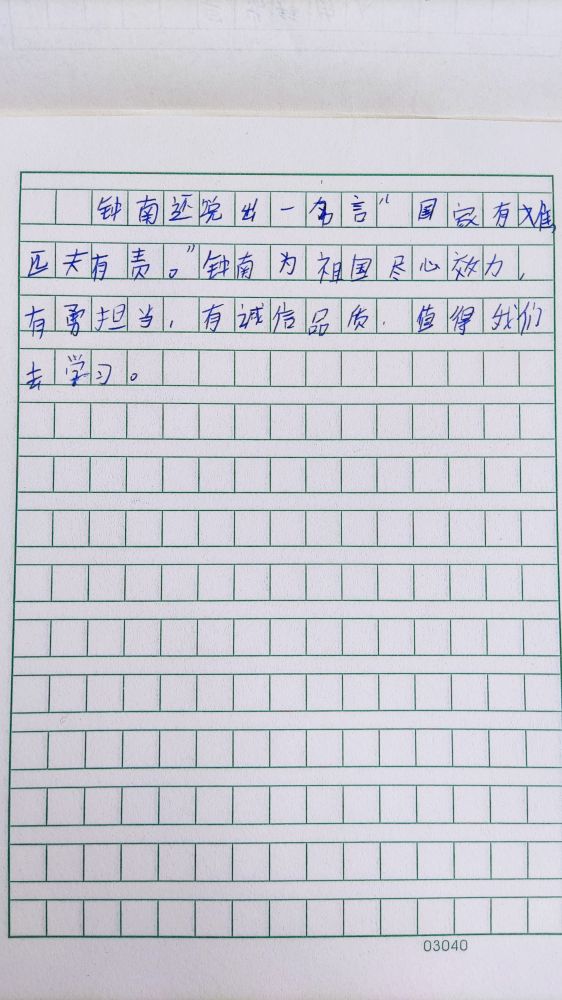 钟南还说出一名言“国家有难
匹夫有责。”钟南为祖国尽心效力，
有勇担当，有诚信品质．值得我们
去学习。
03040